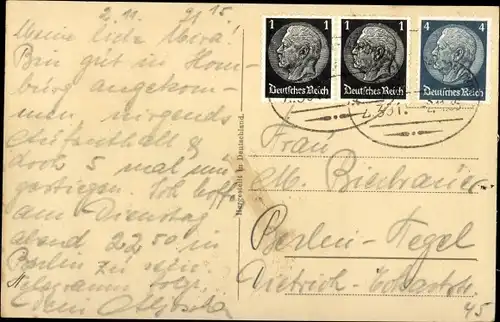 2. 11. 21 15.
Meine liebe Mira!
Bin gut in Hom-
burg angekom-
men nirgends
Aufenthalt &
doch 5 mal um
gestiegen. Ich hoffe
am Dienstag
abend 22 50 in
Berlin zu sein.
Telegramm folgt.
Dein
1
1
4
Deutsches Reich
Deutsches Reich
Deutsches Reich
Hergestellt in Deutschland.
Frau
M. Biedrauer
Berlin-Tegel
Dietrich-Eckartstr.
45